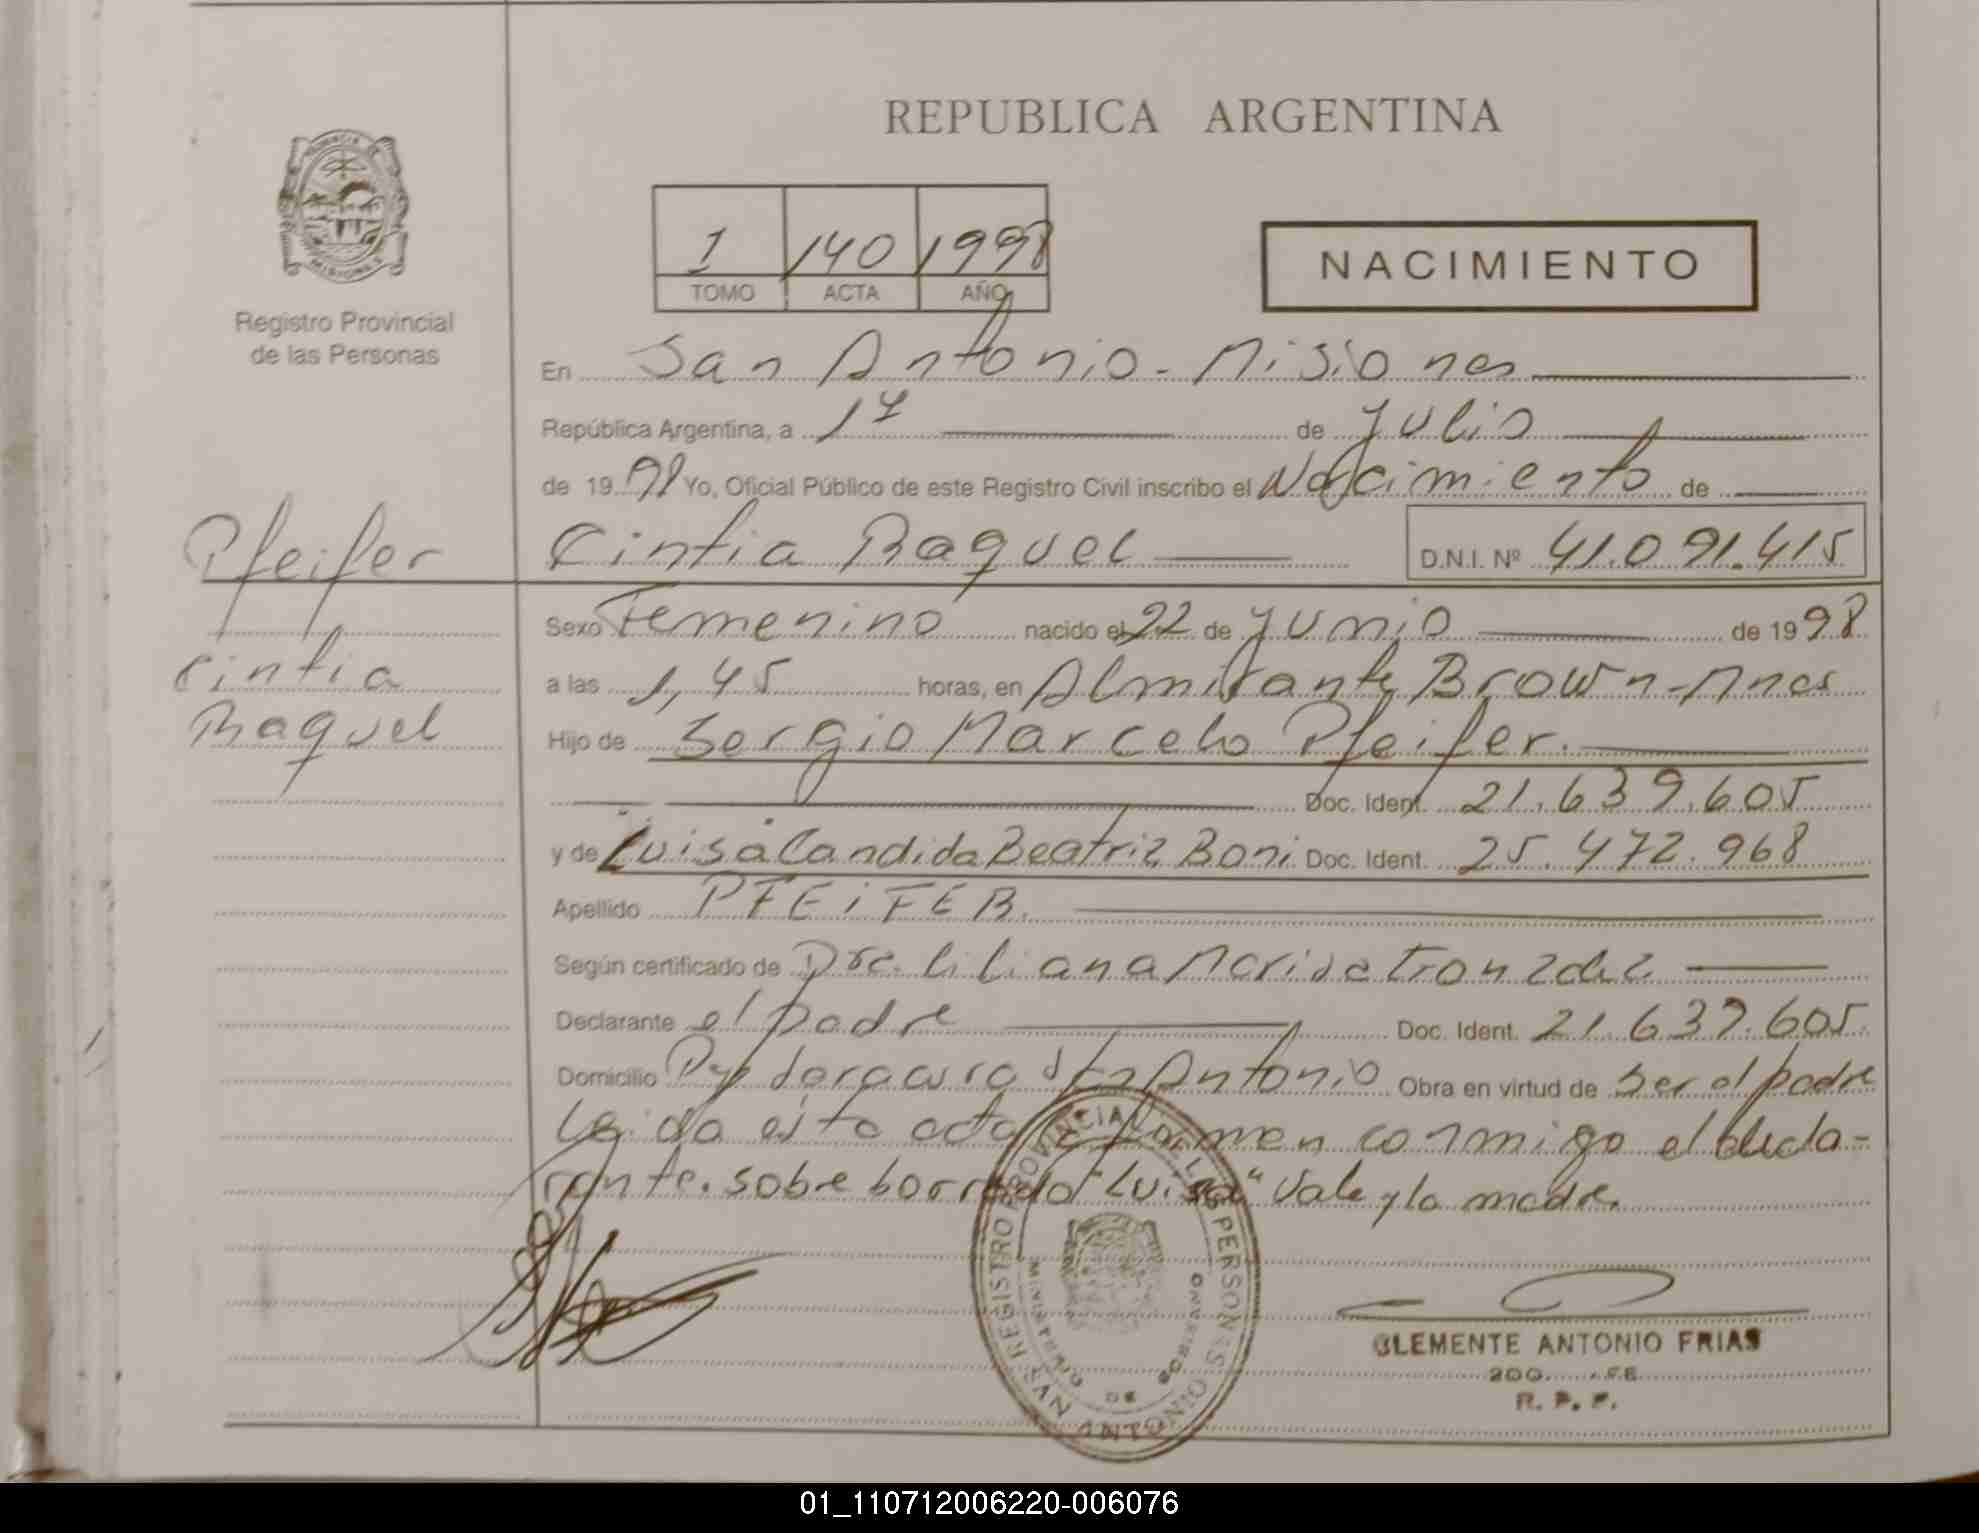 REPUBLICA ARGENTINA
PROVINCIA DE
MISIONES
Registro Provincial
de las Personas
1 140 1998
TOMO ACTA AÑO
NACIMIENTO
En San Antonio - Misiones
República Argentina, a 17 de Julio
de 1998 Yo, Oficial Público de este Registro Civil inscribo el Nacimiento de
Pfeifer
Cintia Raquel D.N.I. Nº 41.091.415
Sexo Femenino nacido el 22 de Junio de 1998
Cintia
a las 1,45 horas, en Almirante Brown - Mnes
Raquel
Hijo de Sergio Marcelo Pfeifer.
Doc. Ident. 21.639.605
y de Luisa Candida Beatriz Boni Doc. Ident. 25.472.968
Apellido PFEIFER.
Según certificado de Dra. Liliana
Declarante el padre Doc. Ident. 21.639.605
Domicilio Antonio Obra en virtud de Ser el padre
Leida esta acta la firman conmigo el decla-
rante. sobre borrado "Luisa" Vale y la madre.
REGISTRO PROVINCIAL DE LAS PERSONAS
MINISTERIO DE GOBIERNO
SAN ANTONIO
CLEMENTE ANTONIO FRIAS
R. P. P.
01_110712006220-006076